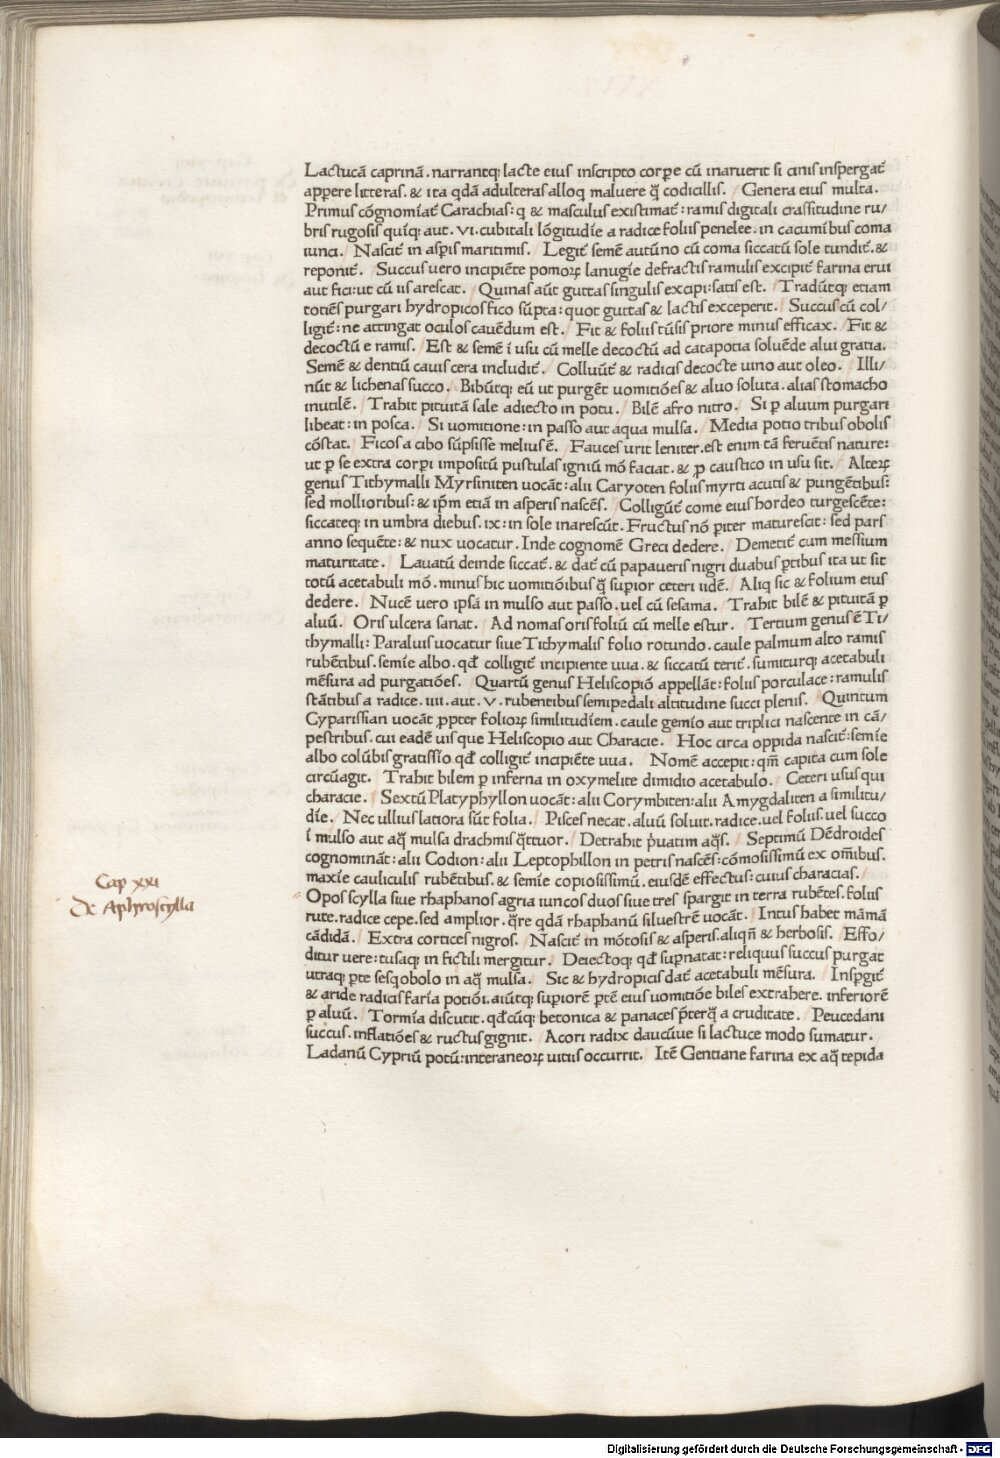 Lactucā caprinā. narrantq; lacte eius inscripto corꝑe cū inaruerit si cinis inspergat᷑
appere litteras. & ita qdā adulteras alloq maluere q̄ codicillis. / Genera eius multa.
Primus cōgnomīat᷑ Carachias: q & masculus existimat᷑: ramis digitali crassitudine ru/
bris rugosis quīq; aut. VI. cubitali lōgitudīe a radice foliis penelee. in cacumibus coma
iunci. / Nascit᷑ in asꝑis maritimis. / Legit᷑ semē autūno cū coma siccatū sole tundit᷑. &
reponit᷑. / Succus uero incipiēte pomoꝝ lanugīe defractis ramulis excipit᷑ farina erui
aut fici: ut cū iis arescat. / Quinas aūt guttas singulis excipi: satis est. / Tradūtq; etiam
totiēs purgari hydropicos fico sūpta: quot guttas & lactis exceperit. / Succus cū col/
ligit᷑: ne attingat oculos cauēdum est. / Fit & foliis tūsis priore minus efficax. / Fit &
decoctū e ramis. / Est & semē ī usu cū melle decoctū ad catapotia soluēde alui gratia.
Semē & dentiū cauis cera includit᷑. / Colluūt᷑ & radicis decocte uino aut oleo. / Illi/
nūt & lichenas succo. / Bibūtq; eū ut purgēt uomitiōes & aluo soluta. alias stomacho
inutilē. / Trahit pituitā sale adiecto in potu. / Bilē afro nitro. / Si ꝑ aluum purgari
libeat: in posca. / Si uomitione: in passo aut aqua mulsa. / Media potio tribus obolis
cōstat. / Ficos a cibo sūpsisse melius ē. / Fauces urit leniter. est enim tā feruētis nature:
ut ꝑ se extra corꝑi impositū pustulas igniū mō faciat. & ꝓ caustico in usu sit. / Alteꝝ
genus Tithymalli Myrsiniten uocāt: alii Caryoten foliis myrti acutis & pungētibus:
sed mollioribus: & ip̄m etiā in asperis nascēs. / Colligūt᷑ come eius hordeo turgescēte:
siccateq; in umbra diebus. ix: in sole inarescūt. Fructus nō ꝑiter maturescit: sed pars
anno sequēte: & nux uocatur. Inde cognomē Greci dedere. / Demetit᷑ cum messium
maturitate. / Lauatū deinde siccat᷑. & dat᷑ cū papaueris nigri duabus ꝑtibus ita ut sit
totū acetabuli mō. minus hic uomitiōibus q̄ suꝑior ceteri iidē. / Aliq sic & folium eius
dedere. / Nucē uero ipsā in mulso aut passo. uel cū sesama. / Trahit bilē & pituitā ꝑ
aluū. / Oris ulcera sanat. / Ad nomas oris foliū cū melle estur. / Tertium genus ē Ti/
thymalli: Paralius uocatur siue Tithymalis folio rotundo. caule palmum alto ramis
rubētibus. semīe albo. qđ colligit᷑ incipiente uua. & siccatū terit᷑. sumiturq; acetabuli
mēsura ad purgatiōes. / Quartū genus Heliscopiō appellāt: foliis porculace: ramulis
stātibus a radice. iiii. aut. V. rubentibus semipedali altitudine succi plenis. / Quintum
Cyparissian uocāt ꝓpter folioꝝ similitudīem. caule gemīo aut triplici nascente in cā/
pestribus. cui eadē uis que Heliscopio aut Characie. / Hoc circa oppida nascit᷑: semīe
albo colūbis gratissīo qđ colligit᷑ incipiēte uua. / Nomē accepit: qm̄ capita cum sole
circūagit. / Trahit bilem ꝑ inferna in oxymelite dimidio acetabulo. / Ceteri usus qui
characie. / Sextū Platyphyllon uocāt: alii Corymbiten: alii Amygdaliten a similitu/
dīe. / Nec ullius latiora sūt folia. / Pisces necat. aluū soluit. radice. uel foliis. uel succo
ī mulso aut aq̄ mulsa drachmis q̄ttuor. / Detrahit p̄uatim aq̄s. / Septimū Dēdroides
cognomināt: alii Codion: alii Leptophillon in petris nascēs: cōmosissimū ex om̄ibus.
maxīe cauliculis rubētibus. & semīe copiosissimū. eiusdē effectus: cuius characias. /
Opos scylla siue rhaphanos agria iuncos duos siue tres spargit in terra rubētes. foliis
rute. radice cepe. sed amplior. q̄re qdā rhaphanū siluestrē uocāt. / Intus habet māmā
cādidā. / Extra cortices nigros. / Nascit᷑ in mōtosis & asperis. aliqn̄ & herbosis. / Effo/
ditur uere: tusaq; in fictili mergitur. / Deiectoq; qđ suꝑnatat: reliquus succus purgat
utraq; ꝑte sesq obolo in aq̄ mulsa. / Sic & hydropicis dat᷑ acetabuli mēsura. / Insꝑgit᷑
& aride radicis farīa potiōi. aiūtq; suꝑiorē ꝑtē eius uomitiōe biles extrahere. inferiorē
ꝑ aluū. / Tormīa discutit. qđcūq; betonica & panaces p̄terq̄ a cruditate. / Peucedani
succus. inflatiōes & ructus gignit. / Acori radix daucūue si lactuce modo sumatur.
Ladanū Cypriū potū: interaneoꝝ uitiis occurrit. / Itē Gentiane farina ex aq̄ tepida
Cap xxi
De Aphroscylla
Digitalisierung gefördert durch die Deutsche Forschungsgemeinschaft - DFG